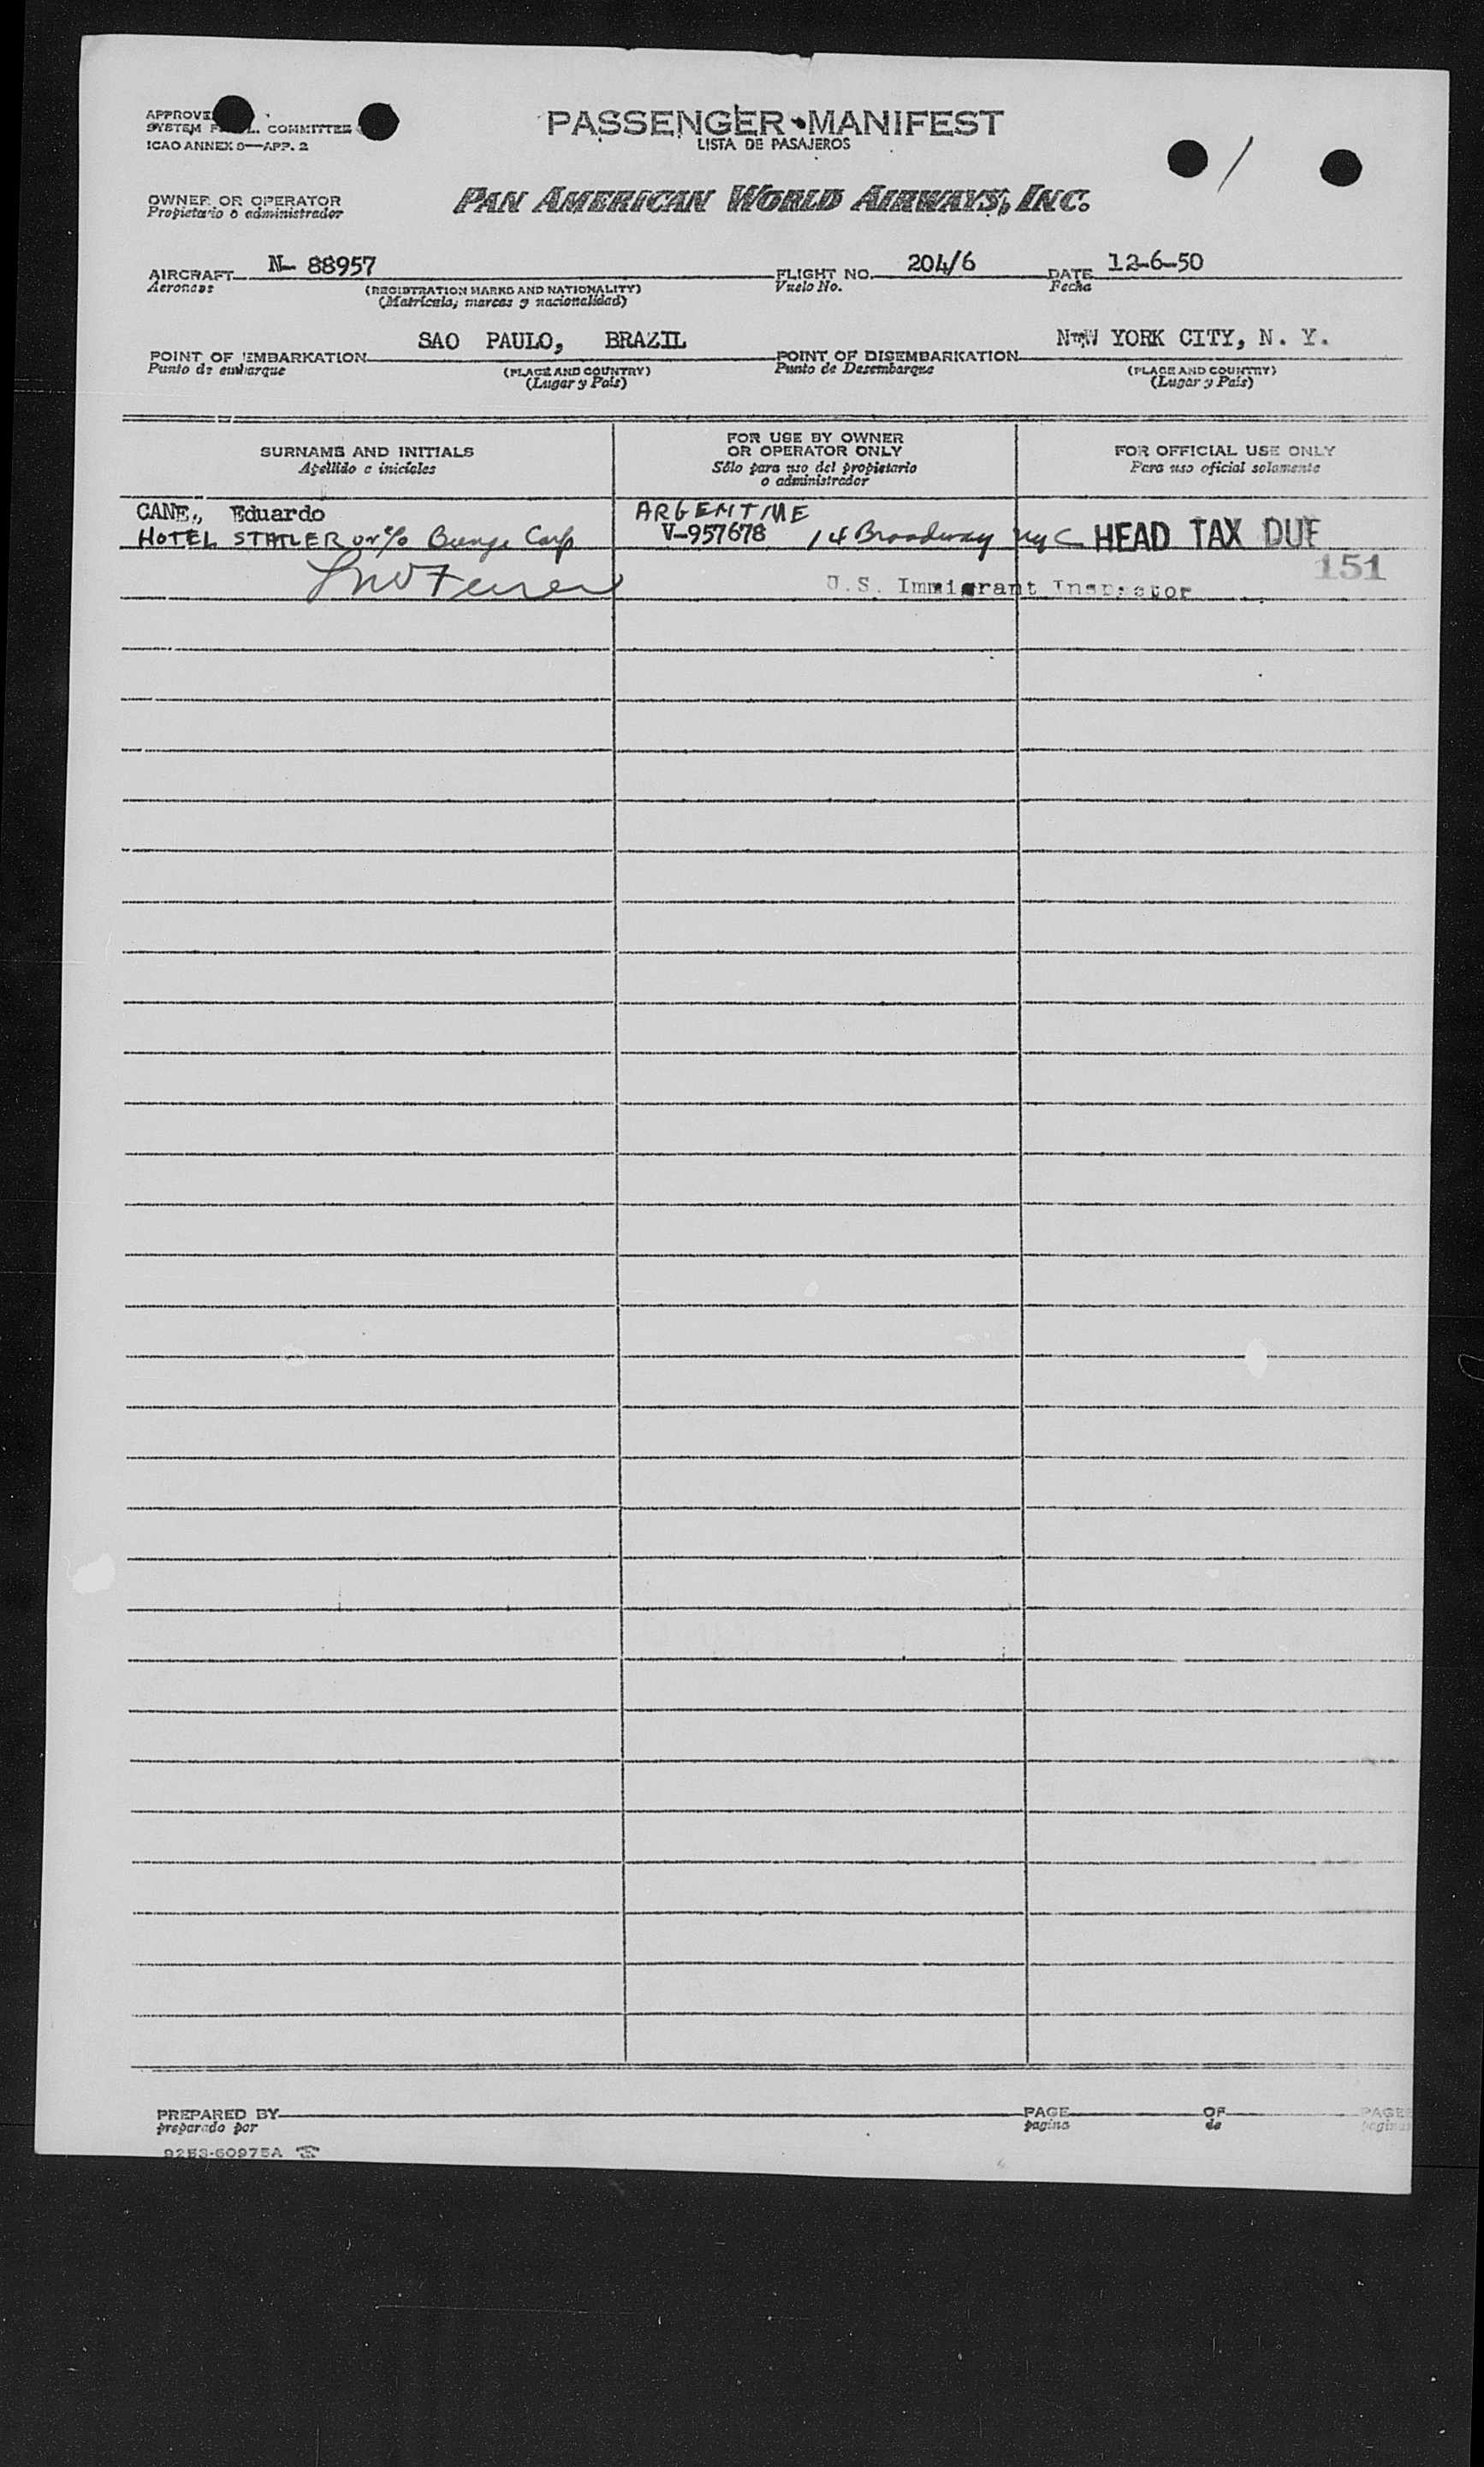 APPROVE
SYSTEM COMMITTEE
ICAO ANNEX 9—APP. 2
PASSENGER MANIFEST
LISTA DE PASAJEROS
/
OWNER OR OPERATOR
Propietario o administrador
PAN AMERICAN WORLD AIRWAYS, INC.
AIRCRAFT N- 88957 FLIGHT NO. 204/6 DATE 12-6-50
Aeronave (REGISTRATION MARKS AND NATIONALITY) Vuelo No. Fecha
(Matricula, marcas y nacionalidad)
POINT OF EMBARKATION SAO PAULO, BRAZIL POINT OF DISEMBARKATION NEW YORK CITY, N. Y.
Punto de embarque (PLACE AND COUNTRY) Punto de Desembarque (PLACE AND COUNTRY)
(Lugar y Pais) (Lugar y Pais)
SURNAME AND INITIALS
Apellido e iniciales
FOR USE BY OWNER
OR OPERATOR ONLY
Sólo para uso del propietario
o administrador
FOR OFFICIAL USE ONLY
Para uso oficial solamente
CANE., Eduardo ARGENTINE
HOTEL STATLER or c/o Bunge Corp V-957678 14 Broadway NYC HEAD TAX DUE
151
U.S. Immigrant Inspector
PREPARED BY PAGE OF PAGES
preparado por pagina de paginas
92B3-60975A